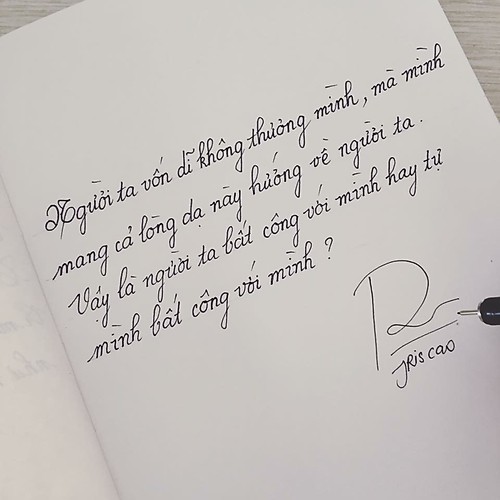 Người ta vốn dĩ không thương mình, mà mình
mang cả lòng dạ này hướng về người ta.
Vậy là người ta bất công với mình hay tự
mình bất công với mình ?
JRis cao